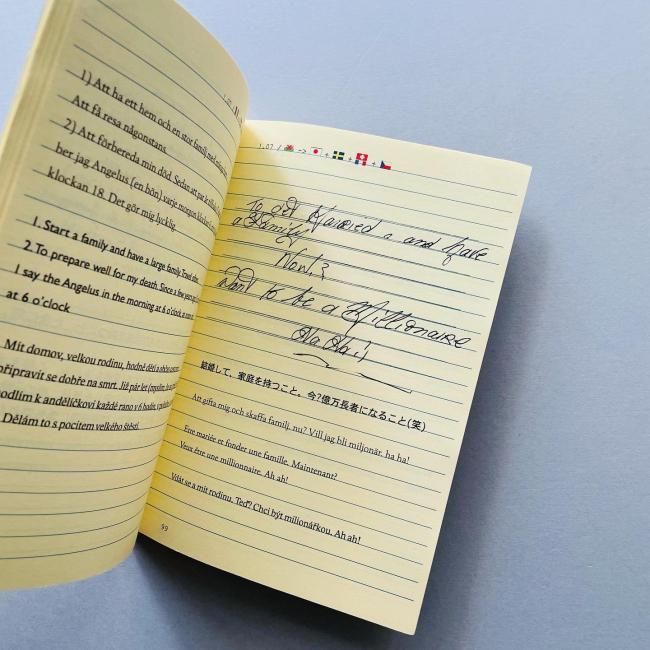 1) Att ha ett hem och en stor familj med
Att få resa någonstans.
2) Att förbereda min död. Sedan ett par år tillbaka
ber jag Angelus (en bön) varje morgon klockan
klockan 18. Det gör mig lycklig.
1. Start a family and have a large family. Travel
2. To prepare well for my death. Since a few years ago
I say the Angelus in the morning at 6 o'clock,
at 6 o'clock
Mít domov, velkou rodinu, hodně dětí a
připravit se dobře na smrt. Již pár let
odlím k andělíčkovi každé ráno v 6 hodin,
Dělám to s pocitem velkého štěstí.
1.07 /
To get Married and have
a Family
Now!?
Want to be a Millionaire
Ha Ha!!
結婚して、家庭を持つこと。今?億万長者になること(笑)
Att gifta mig och skaffa familj, nu? Vill jag bli miljonär, ha ha!
Etre mariée et fonder une famille. Maintenant?
Veux être une millionnaire. Ah ah!
Vdát se a mít rodinu. Teď? Chci být milionářkou. Ah ah!
59